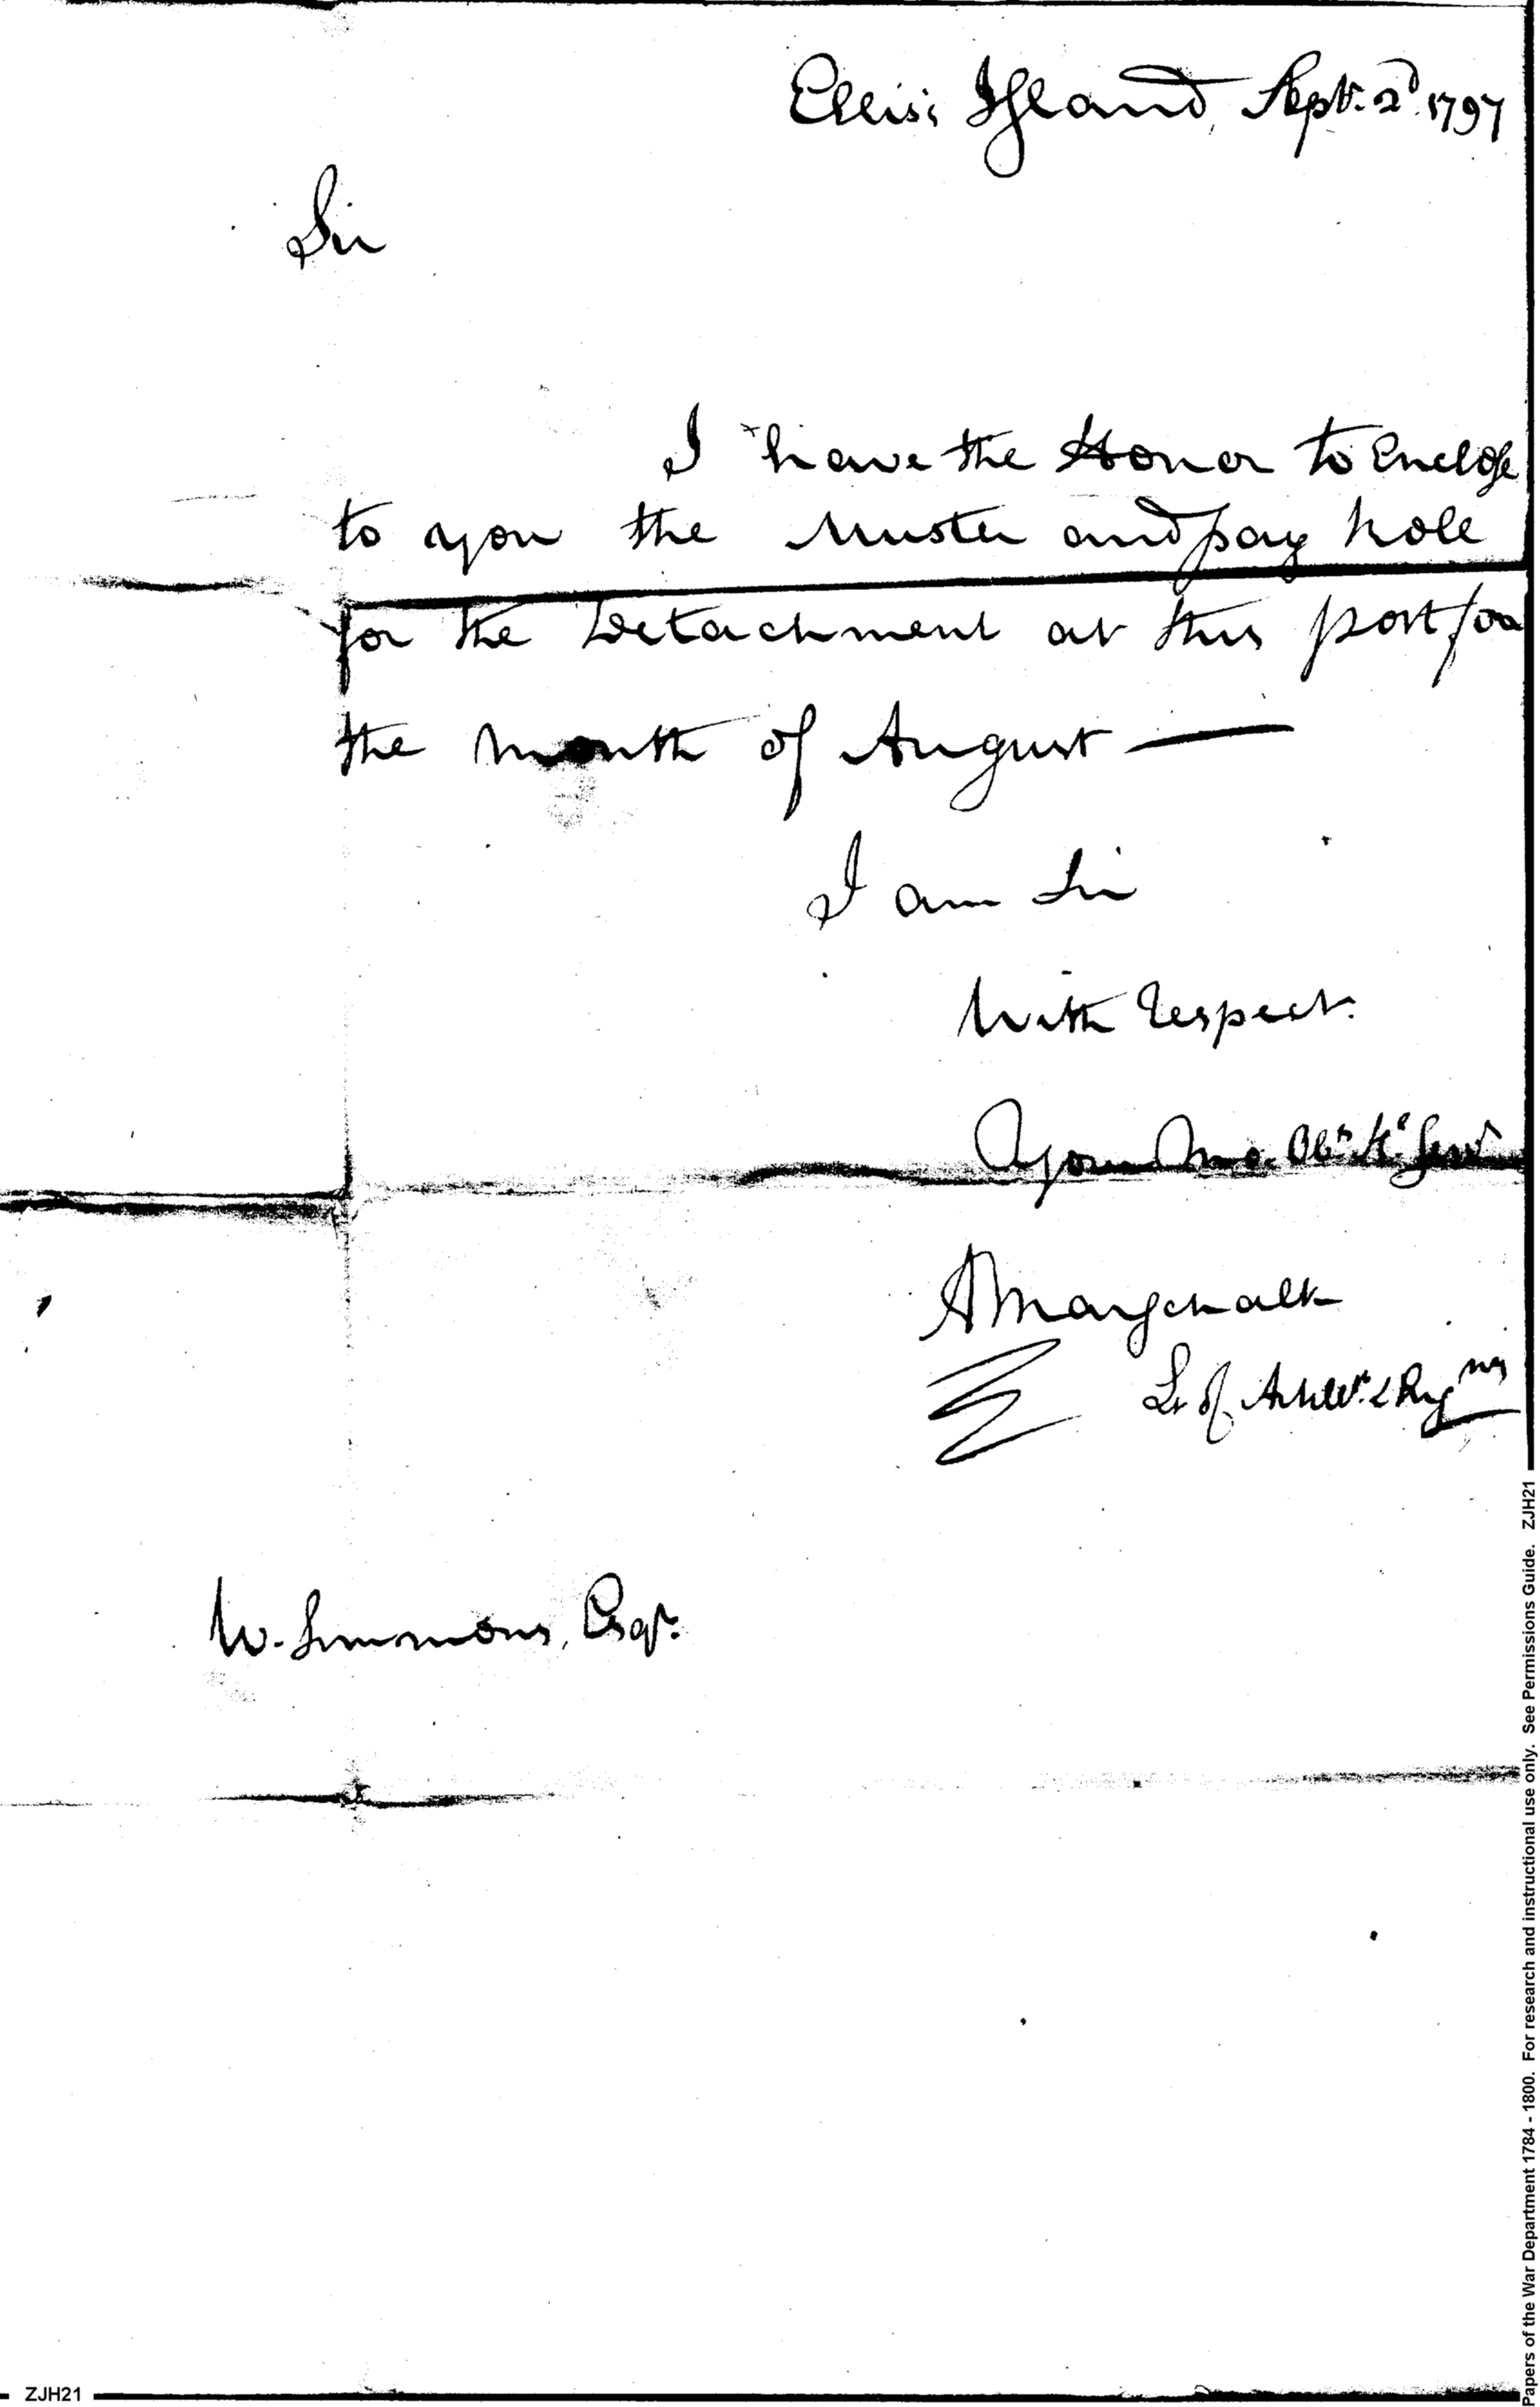 Ellis's Island, Sept. 2d. 1797
Sir
I have the Honor to Enclose
to you the Muster and pay Role
for the Detachment at this post for
the Month of August —
I am Sir
With respect.
Your Mo. Obt. He Servt
A Marschalk
Lt of Artillr. & Engrs
W. Simmons, Esqr.
ZJH21
Papers of the War Department 1784 - 1800. For research and instructional use only. See Permissions Guide. ZJH21